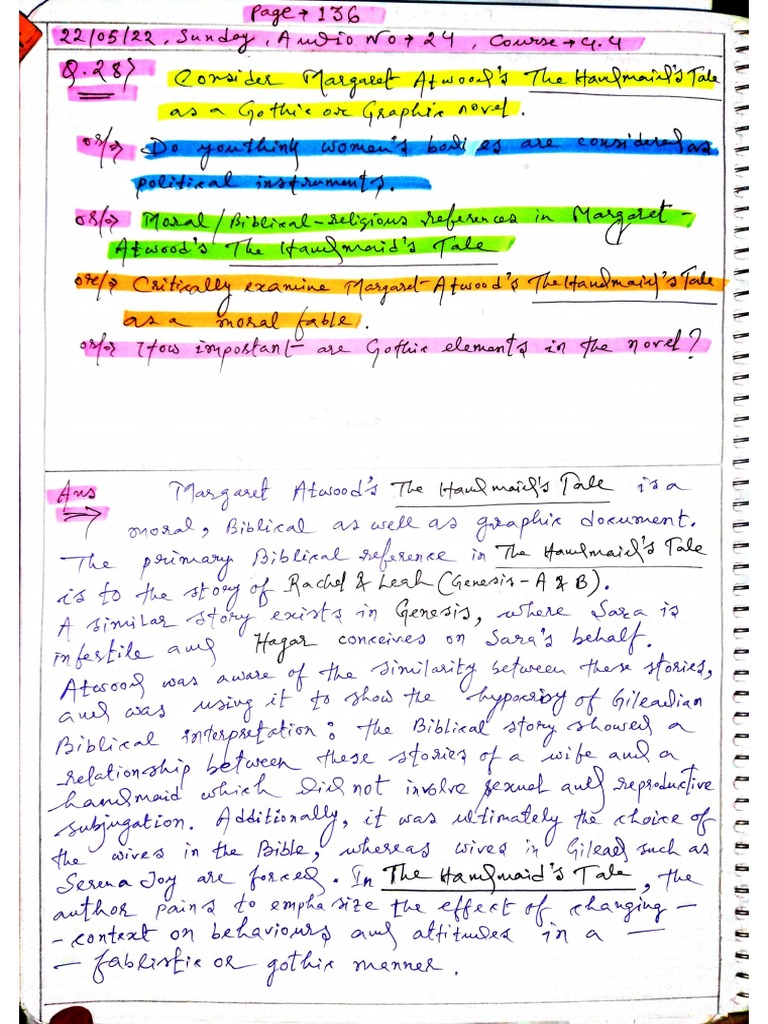 Page → 136
22/05/22, Sunday, Audio No → 24, Course → 4.4
Q.28) Consider Margaret Atwood's The Handmaid's Tale
as a Gothic or Graphic novel.
or/→ Do you think women's bodies are considered as
political instruments.
or/→ Moral/Biblical-religious references in Margaret
Atwood's The Handmaid's Tale
or/→ Critically examine Margaret Atwood's The Handmaid's Tale
as a moral fable.
or/→ How important are Gothic elements in the novel?
Ans → Margaret Atwood's The Handmaid's Tale is a
moral, Biblical as well as graphic document.
The primary Biblical reference in The Handmaid's Tale
is to the story of Rachel & Leah (Genesis - A & B).
A similar story exists in Genesis, where Sara is
infertile and Hagar conceives on Sara's behalf.
Atwood was aware of the similarity between these stories,
and was using it to show the hypocrisy of Gileadian
Biblical interpretation: the Biblical story showed a
relationship between these stories of a wife and a
handmaid which did not involve sexual and reproductive
subjugation. Additionally, it was ultimately the choice of
the wives in the Bible, whereas wives in Gilead such as
Serena Joy are forced. In The Handmaid's Tale, the
author pains to emphasize the effect of changing -
- context on behaviours and attitudes in a —
— fablistic or gothic manner.